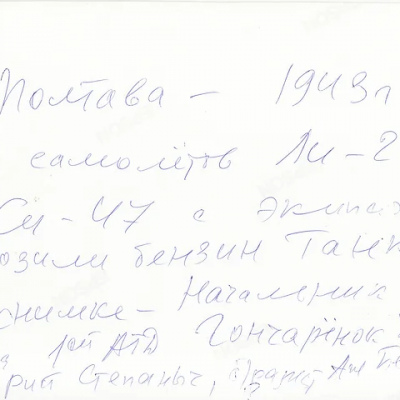 Полтава – 1943г
самолётов Ли-2
Си-47 с экипаж
озили бензин Танк
снимке – Начальник
АТД Гончаренок
рий Степаныч,